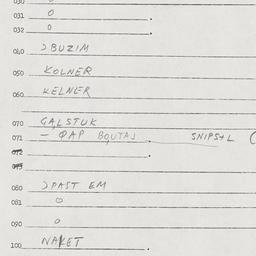 030 0
031 0 .
032 0 .
040 ƆBUZIM
050 KOLNER
060 KELNER
070 GALSTUK
071 – ФAP BOUTAJ . SNIPS+L (
072 .
073
080 ƆPAST EM
081 0
090 0
100 NAKET .